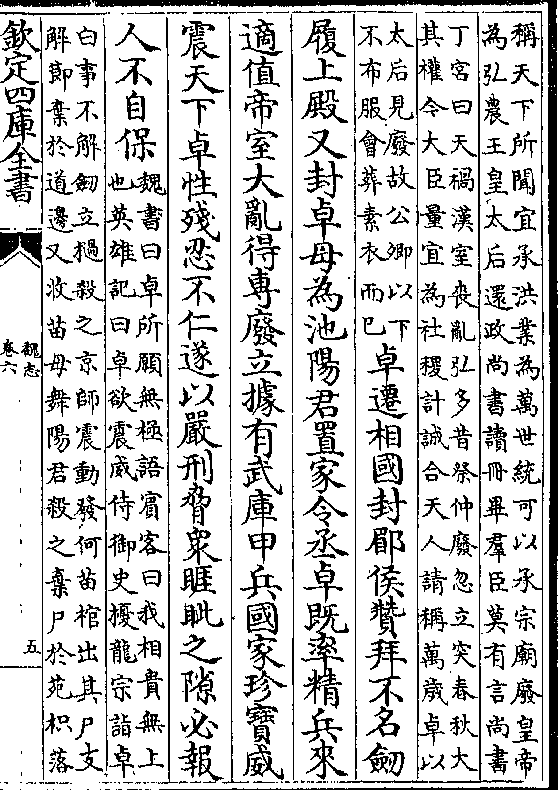 稱天下所聞宜承洪業為萬世統可以承宗廟廢皇帝
為弘農王皇太后還政尚書讀冊畢羣臣莫有言尚書
丁宮曰天禍漢室喪亂弘多昔祭仲廢忽立突春秋大
其權今大臣量宜為社稷計誠合天人請稱萬歲卓以
太后見廢故公卿以下
不布服會葬素衣而已
卓遷相國封郿侯贊拜不名劒
履上殿又封卓母為池陽君置家令丞卓既率精兵來
適值帝室大亂得專廢立據有武庫甲兵國家珍寶威
震天下卓性殘忍不仁遂以嚴刑脅衆睚眦之隙必報
人不自保
魏書曰卓所願無極語賓客曰我相貴無上
也英雄記曰卓欲震威侍御史擾龍宗詣卓
白事不解劒立撾殺之京師震動發何苗棺出其尸支
解節棄於道邊又收苗母舞陽君殺之棄尸於苑枳落
欽定四庫全書
魏志
卷六
五